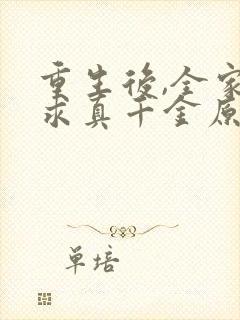 重生後,全家
求真千金原
单培